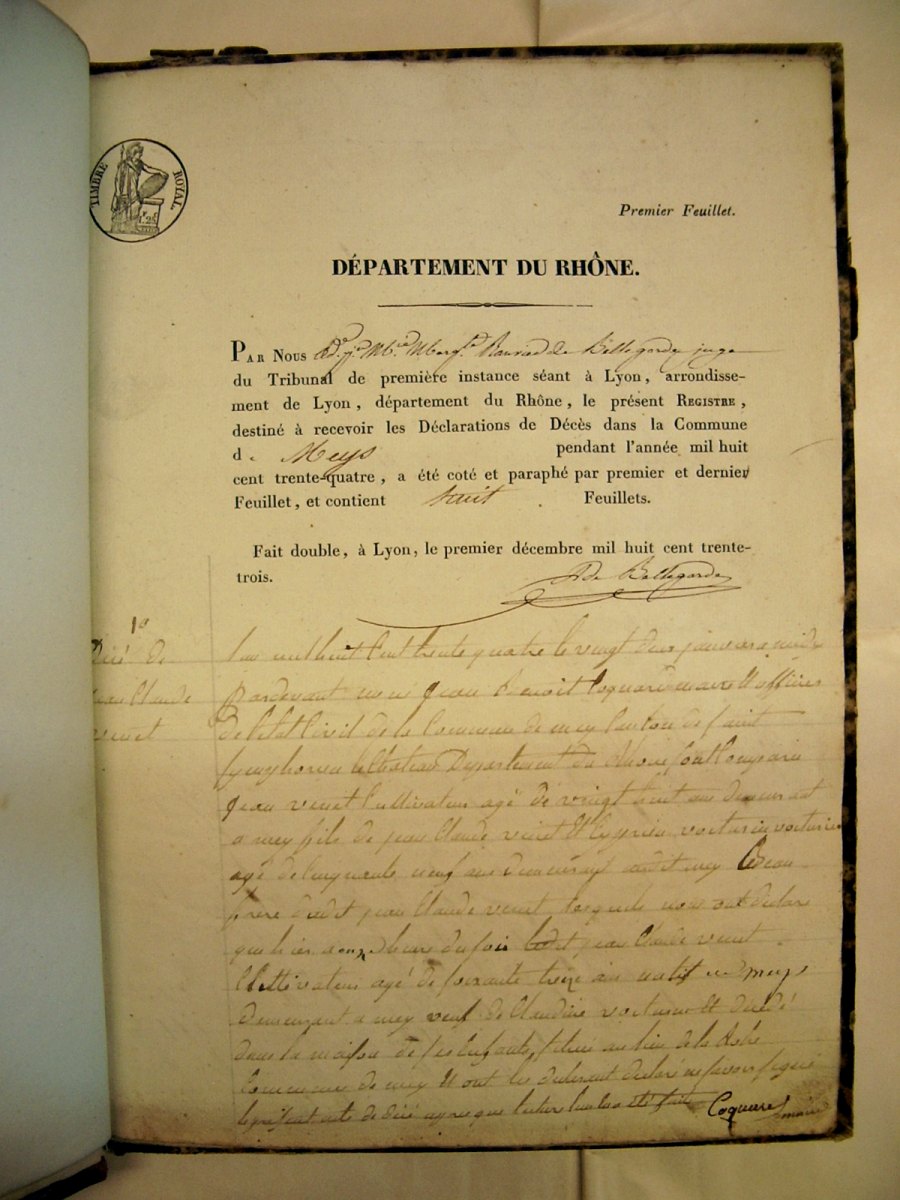 TIMBRE ROYAL.
Premier Feuillet.
DÉPARTEMENT DU RHÔNE.
PAR NOUS de Bellegarde juge
du Tribunal de première instance séant à Lyon, arrondisse-
ment de Lyon, département du Rhône, le présent REGISTRE,
destiné à recevoir les Déclarations de Décès dans la Commune
d e Meys pendant l'année mil huit
cent trente-quatre, a été coté et paraphé par premier et dernier
Feuillet, et contient huit Feuillets.
Fait double, à Lyon, le premier décembre mil huit cent trente-
trois.
De Bellegarde
1e
de
Claude
venet
Lan mil huit Cent trente quatre le vingt deux janvier a midy
pardevant nous jean Benoit Coquard maire et officier
De l'état Civil de la Commune de mey Canton de saint
symphorien le Chateau Département du Rhone sont Comparu
jean venet Cultivateur agé de vingt huit ans demeurant
a mey fils de jean Claude venet Et voiturier
agé de Cinquante neuf ans demeurant audit mey Beau
frere dudit jean Claude venet lesquels nous ont declare
que hier a onze heure du soir ledit jean Claude venet
Cultivateur agé de soixante treize ans natif de meys
demeurant a mey veuf de Claudine Et décédé
dans la maison de ses Enfants au lieu de la
Commune de mey Et ont les declarant declaré ne savoir signé
le present acte de décé apres que lecture leur a été faite Coquard maire